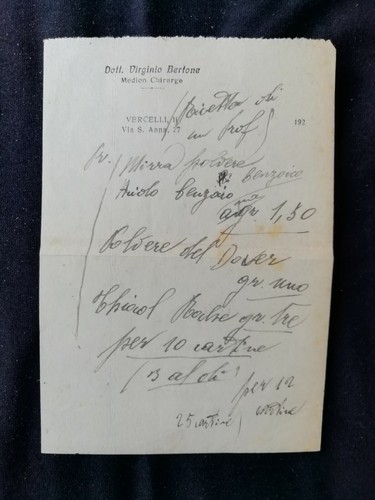 Dott. Virginio Bertone
Medico Chirurgo
VERCELLI, lì 192
Via S. Anna, 27
(Ricetta di
un Prof)
Pr. Mirra polvere
Acido benzoico benzoico
gr. 1,50
Polvere del Dower
gr. uno
Thiocol Roche gr. tre
per 10 cartine
(3 al dì)
per 12
cartine
25 cartine